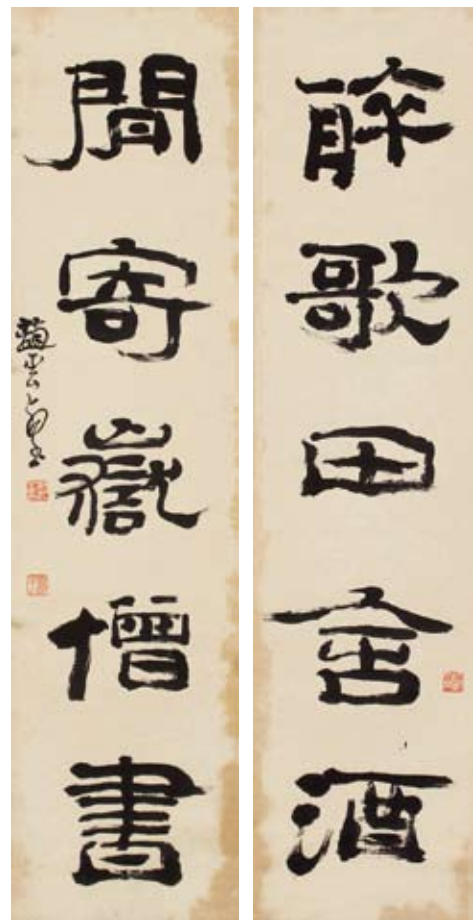 醉歌田舍酒
間寄嶽僧書